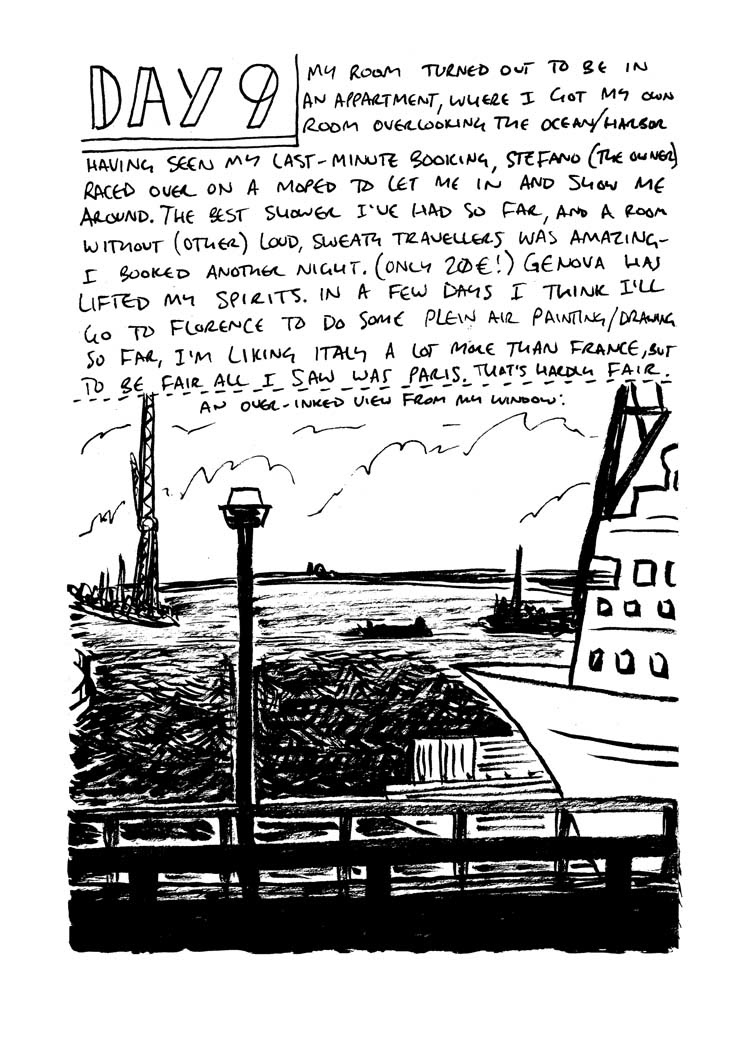 DAY 9
MY ROOM TURNED OUT TO BE IN
AN APPARTMENT, WHERE I GOT MY OWN
ROOM OVERLOOKING THE OCEAN/HARBOR
HAVING SEEN MY LAST-MINUTE BOOKING, STEFANO (THE OWNER)
RACED OVER ON A MOPED TO LET ME IN AND SHOW ME
AROUND. THE BEST SHOWER I'VE HAD SO FAR, AND A ROOM
WITHOUT (OTHER) LOUD, SWEATY TRAVELLERS WAS AMAZING-
I BOOKED ANOTHER NIGHT. (ONLY 20€!) GENOVA HAS
LIFTED MY SPIRITS. IN A FEW DAYS I THINK I'LL
GO TO FLORENCE TO DO SOME PLEIN AIR PAINTING/DRAWING
SO FAR, I'M LIKING ITALY A LOT MORE THAN FRANCE, BUT
TO BE FAIR ALL I SAW WAS PARIS. THAT'S HARDLY FAIR.
AN OVER-INKED VIEW FROM MY WINDOW: